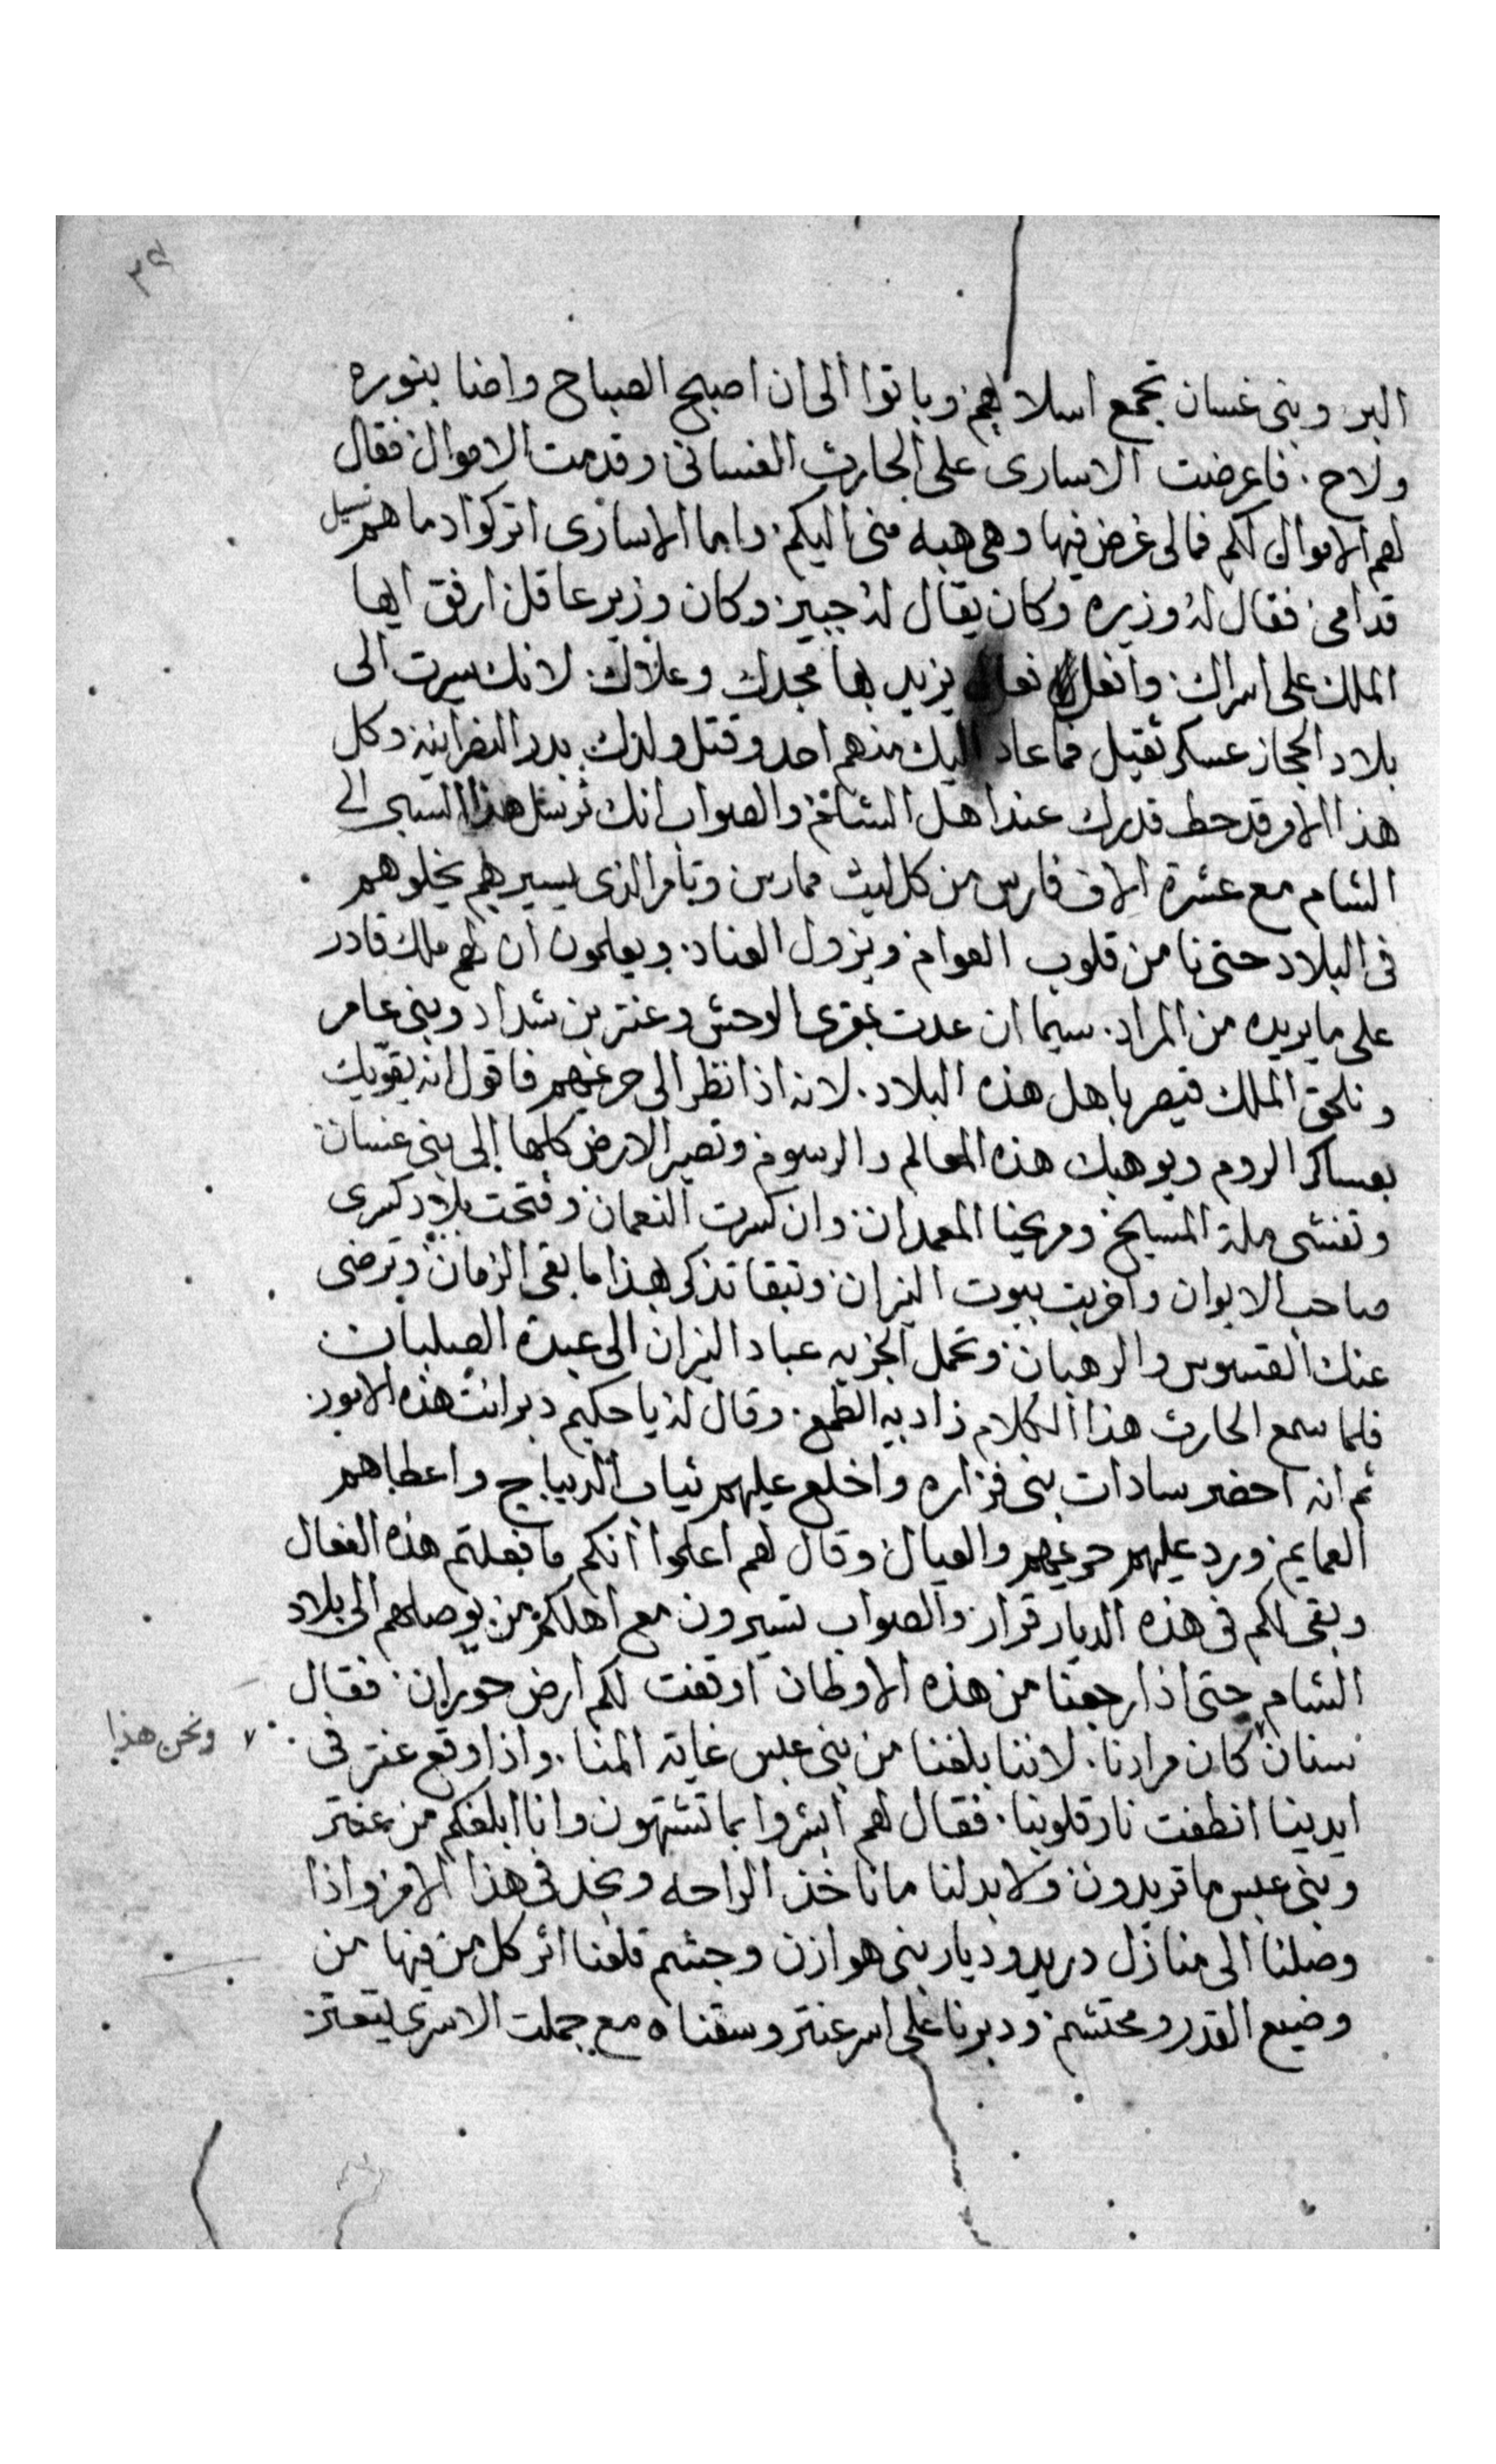 ٣٩
البر وبنى غسان تجمع اسلابهم وباتوا الى ان اصبح الصباح واضا بنوره
ولاح. فاعرضت الاسارى على الحارث الغسانى وقدمت الاموال فقال
لهم الاموال لكم فمالى غرض فيها وهى هبه منى اليكم. واما الاسارى اتركوا دماهم تسيل
قدامى فقال له وزيره وكان يقال له جبير وكان وزير عاقل ارفق ايها
الملك على اسراك وافعل فعال يزيد بها مجدك وعلاوك. لانك سيرت الى
بلاد الحجاز عسكر ثقيل فما عاد اليك منهم احد وقتل ولدك بدر النصرانيه وكل
هذا الامر قد حط قدرك عند اهل الشام والصواب انك ترسل هذا السبى الى
الشام مع عشرة الاف فارس من كل ليث ممارس وتامر الذى يسير بهم يخلوهم
فى البلاد حتى من قلوب العوام ويزول العناد. ويعلمون ان لهم ملك قادر
على ما يريده من المراد. سيما ان عدت بمقرى الوحش وعنتر بن شداد وبنى عامر
وتلحق الملك قيصر باهل هذه البلاد. لانه اذا نظر الى حريمهم فاقول انه يقويك
بعساكر الروم ويوهبك هذه المعالم والرسوم وتصير الارض كلها الى بنى غسان
وتفشى ملة المسيح ومريحنا المعمدان. وان كسرت النعمان وفتحت بلاد كسرى
صاحب الايوان واخربت بيوت النيران وتبقا تذكر بهذا ما بقى الزمان وترضى
عنك القسوس والرهبان وتحمل الجزيه عباد النيران الى عبدة الصلبان
فلما سمع الحارث هذا الكلام زاد به الطمع. وقال له يا حكيم دبر انت هذه الامور.
ثم انه احضر سادات بنى فزاره واخلع عليهم ثياب الديباج واعطاهم
العمايم ورد عليهم حريمهم والعيال وقال لهم اعلموا انكم ما فعلتم هذه الفعال
وبقى لكم فى هذه الديار قرار والصواب تسيرون مع اهلكم من يوصلهم الى بلاد
الشام حتى اذا رجعنا من هذه الاوطان اوقفت لكم ارض حوران. فقال
سنان كان مرادنا. لاننا بلغنا من بنى عبس غاية المنا. واذا وقع عنتر فى
٧ ونحن هذا
ايدينا انطفت نار قلوبنا. فقال لهم ابشروا بما تشتهون وانا ابلغكم من عنتر
وبنى عبس ما تريدون ولا بد لنا ما ناخذ الراحه ونجد فى هذا الامر واذا
وصلنا الى منازل دريد وديار بنى هوازن وجشم قلعنا اثر كل من فيها من
وضيع القدر ومحتشم ودبرنا على اسر عنتر وسقناه مع جملت الاسرى